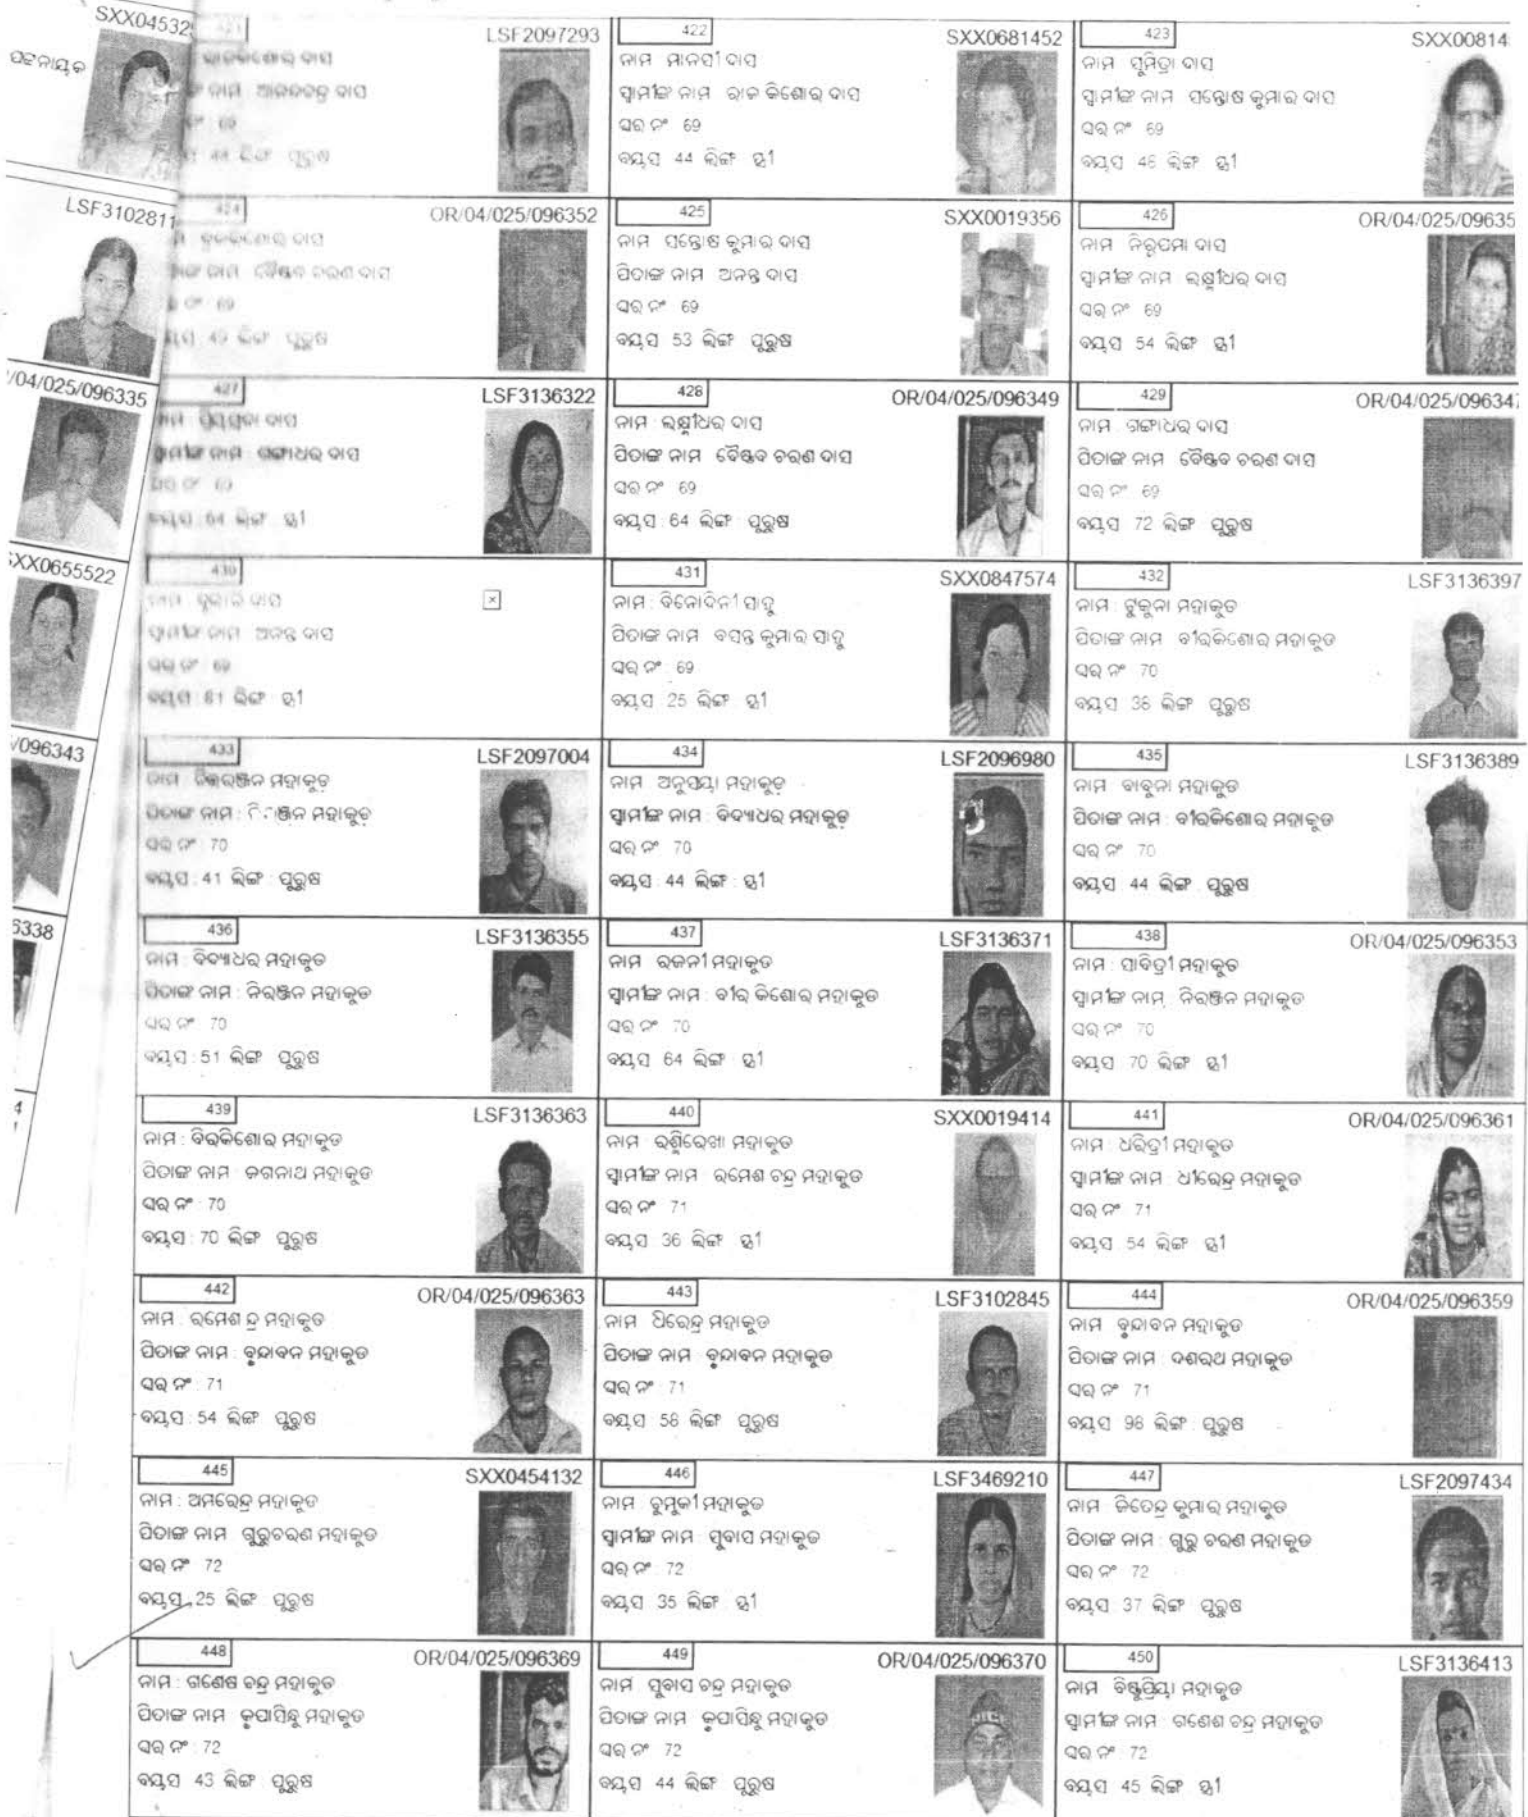 SXX04532
ପଟ୍ଟନାୟକ
LSF3102811
/04/025/096335
SXX0655522
/096343
6338
421
LSF2097293
ରାଜକିଶୋର ଦାସ
ନାମ ଆନନ୍ଦଚନ୍ଦ୍ର ଦାସ
69
44 ଲିଙ୍ଗ ପୁରୁଷ
422
SXX0681452
ନାମ ମାନସୀ ଦାସ
ସ୍ବାମୀଙ୍କ ନାମ ରାଜ କିଶୋର ଦାସ
ଘର ନଂ 69
ବୟସ 44 ଲିଙ୍ଗ ସ୍ତ୍ରୀ
423
SXX00814
ନାମ ସୁମିତ୍ରା ଦାସ
ସ୍ବାମୀଙ୍କ ନାମ ସନ୍ତୋଷ କୁମାର ଦାସ
ଘର ନଂ 69
ବୟସ 46 ଲିଙ୍ଗ ସ୍ତ୍ରୀ
424
OR/04/025/096352
ବ୍ରଜକିଶୋର ଦାସ
ନାମ ବୈଷ୍ଣବ ଚରଣ ଦାସ
ନଂ 69
49 ଲିଙ୍ଗ ପୁରୁଷ
425
SXX0019356
ନାମ ସନ୍ତୋଷ କୁମାର ଦାସ
ପିତାଙ୍କ ନାମ ଅନନ୍ତ ଦାସ
ଘର ନଂ 69
ବୟସ 53 ଲିଙ୍ଗ ପୁରୁଷ
426
OR/04/025/09635
ନାମ ନିରୁପମା ଦାସ
ସ୍ବାମୀଙ୍କ ନାମ ଲକ୍ଷ୍ମୀଧର ଦାସ
ଘର ନଂ 69
ବୟସ 54 ଲିଙ୍ଗ ସ୍ତ୍ରୀ
427
LSF3136322
ନାମ : ପ୍ରିୟମ୍ବଦା ଦାସ
ସ୍ବାମୀଙ୍କ ନାମ : ଗଙ୍ଗାଧର ଦାସ
ଘର ନଂ 69
ବୟସ : 64 ଲିଙ୍ଗ : ସ୍ତ୍ରୀ
428
OR/04/025/096349
ନାମ : ଲକ୍ଷ୍ମୀଧର ଦାସ
ପିତାଙ୍କ ନାମ ବୈଷ୍ଣବ ଚରଣ ଦାସ
ଘର ନଂ 69
ବୟସ : 64 ଲିଙ୍ଗ : ପୁରୁଷ
429
OR/04/025/096347
ନାମ : ଗଙ୍ଗାଧର ଦାସ
ପିତାଙ୍କ ନାମ ବୈଷ୍ଣବ ଚରଣ ଦାସ
ଘର ନଂ 69
ବୟସ 72 ଲିଙ୍ଗ ପୁରୁଷ
430
ନାମ : ଦାସ
ସ୍ବାମୀଙ୍କ ନାମ ଅନନ୍ତ ଦାସ
ଘର ନଂ 69
ବୟସ : 81 ଲିଙ୍ଗ ସ୍ତ୍ରୀ
431
SXX0847574
ନାମ : ବିନୋଦିନୀ ସାହୁ
ପିତାଙ୍କ ନାମ ବସନ୍ତ କୁମାର ସାହୁ
ଘର ନଂ 69
ବୟସ 25 ଲିଙ୍ଗ ସ୍ତ୍ରୀ
432
LSF3136397
ନାମ : ଟୁକୁନା ମହାକୁଡ
ପିତାଙ୍କ ନାମ ବୀରକିଶୋର ମହାକୁଡ
ଘର ନଂ 70
ବୟସ 36 ଲିଙ୍ଗ ପୁରୁଷ
433
LSF2097004
ନାମ : ଚିତ୍ତରଞ୍ଜନ ମହାକୁଡ଼
ପିତାଙ୍କ ନାମ : ମହାକୁଡ଼
ଘର ନଂ 70
ବୟସ : 41 ଲିଙ୍ଗ : ପୁରୁଷ
434
LSF2096980
ନାମ ଅନୁସୟା ମହାକୁଡ଼
ସ୍ବାମୀଙ୍କ ନାମ : ବିଦ୍ୟାଧର ମହାକୁଡ଼
ଘର ନଂ 70
ବୟସ : 44 ଲିଙ୍ଗ : ସ୍ତ୍ରୀ
435
LSF3136389
ନାମ ବାବୁନା ମହାକୁଡ
ପିତାଙ୍କ ନାମ : ବୀରକିଶୋର ମହାକୁଡ
ଘର ନଂ 70
ବୟସ 44 ଲିଙ୍ଗ : ପୁରୁଷ
436
LSF3136355
ନାମ : ବିଦ୍ୟାଧର ମହାକୁଡ
ପିତାଙ୍କ ନାମ : ନିରଞ୍ଜନ ମହାକୁଡ
ଘର ନଂ 70
ବୟସ : 51 ଲିଙ୍ଗ ପୁରୁଷ
437
LSF3136371
ନାମ ରଜନୀ ମହାକୁଡ
ସ୍ବାମୀଙ୍କ ନାମ : ବୀର କିଶୋର ମହାକୁଡ
ଘର ନଂ 70
ବୟସ 64 ଲିଙ୍ଗ ସ୍ତ୍ରୀ
438
OR/04/025/096353
ନାମ : ସାବିତ୍ରୀ ମହାକୁଡ
ସ୍ବାମୀଙ୍କ ନାମ ନିରଞ୍ଜନ ମହାକୁଡ
ଘର ନଂ 70
ବୟସ 70 ଲିଙ୍ଗ ସ୍ତ୍ରୀ
439
LSF3136363
ନାମ : ବିରକିଶୋର ମହାକୁଡ
ପିତାଙ୍କ ନାମ ଜଗନାଥ ମହାକୁଡ
ଘର ନଂ 70
ବୟସ : 70 ଲିଙ୍ଗ ପୁରୁଷ
440
SXX0019414
ନାମ ରଶ୍ମିରେଖା ମହାକୁଡ
ସ୍ବାମୀଙ୍କ ନାମ ରମେଶ ଚନ୍ଦ୍ର ମହାକୁଡ
ଘର ନଂ 71
ବୟସ 36 ଲିଙ୍ଗ ସ୍ତ୍ରୀ
441
OR/04/025/096361
ନାମ : ଧରିତ୍ରୀ ମହାକୁଡ
ସ୍ବାମୀଙ୍କ ନାମ ଧୀରେନ୍ଦ୍ର ମହାକୁଡ
ଘର ନଂ 71
ବୟସ 54 ଲିଙ୍ଗ ସ୍ତ୍ରୀ
442
OR/04/025/096363
ନାମ : ରମେଶ ନ୍ଦ୍ର ମହାକୁଡ
ପିତାଙ୍କ ନାମ : ବୃନ୍ଦାବନ ମହାକୁଡ
ଘର ନଂ : 71
ବୟସ : 54 ଲିଙ୍ଗ ପୁରୁଷ
443
LSF3102845
ନାମ ଧିରେନ୍ଦ୍ର ମହାକୁଡ
ପିତାଙ୍କ ନାମ : ବୃନ୍ଦାବନ ମହାକୁଡ
ଘର ନଂ : 71
ବୟସ : 58 ଲିଙ୍ଗ ପୁରୁଷ
444
OR/04/025/096359
ନାମ ବୃନ୍ଦାବନ ମହାକୁଡ
ପିତାଙ୍କ ନାମ : ଦଶରଥ ମହାକୁଡ
ଘର ନଂ 71
ବୟସ 98 ଲିଙ୍ଗ : ପୁରୁଷ
445
SXX0454132
ନାମ : ଅମରେନ୍ଦ୍ର ମହାକୁଡ
ପିତାଙ୍କ ନାମ ଗୁରୁଚରଣ ମହାକୁଡ
ଘର ନଂ 72
ବୟସ 25 ଲିଙ୍ଗ ପୁରୁଷ
446
LSF3469210
ନାମ : ଝୁମୁକୀ ମହାକୁଡ
ସ୍ବାମୀଙ୍କ ନାମ ସୁବାସ ମହାକୁଡ
ଘର ନଂ 72
ବୟସ 35 ଲିଙ୍ଗ ସ୍ତ୍ରୀ
447
LSF2097434
ନାମ ଜିତେନ୍ଦ୍ର କୁମାର ମହାକୁଡ
ପିତାଙ୍କ ନାମ : ଗୁରୁ ଚରଣ ମହାକୁଡ
ଘର ନଂ 72
ବୟସ : 37 ଲିଙ୍ଗ ପୁରୁଷ
448
OR/04/025/096369
ନାମ : ଗଣେଷ ଚନ୍ଦ୍ର ମହାକୁଡ
ପିତାଙ୍କ ନାମ କୃପାସିନ୍ଧୁ ମହାକୁଡ
ଘର ନଂ 72
ବୟସ 43 ଲିଙ୍ଗ : ପୁରୁଷ
449
OR/04/025/096370
ନାମ ସୁବାସ ଚନ୍ଦ୍ର ମହାକୁଡ
ପିତାଙ୍କ ନାମ କୃପାସିନ୍ଧୁ ମହାକୁଡ
ଘର ନଂ 72
ବୟସ 44 ଲିଙ୍ଗ ପୁରୁଷ
450
LSF3136413
ନାମ ବିଷ୍ଣୁପ୍ରିୟା ମହାକୁଡ
ସ୍ବାମୀଙ୍କ ନାମ : ଗଣେଶ ଚନ୍ଦ୍ର ମହାକୁଡ
ଘର ନଂ : 72
ବୟସ 45 ଲିଙ୍ଗ ସ୍ତ୍ରୀ